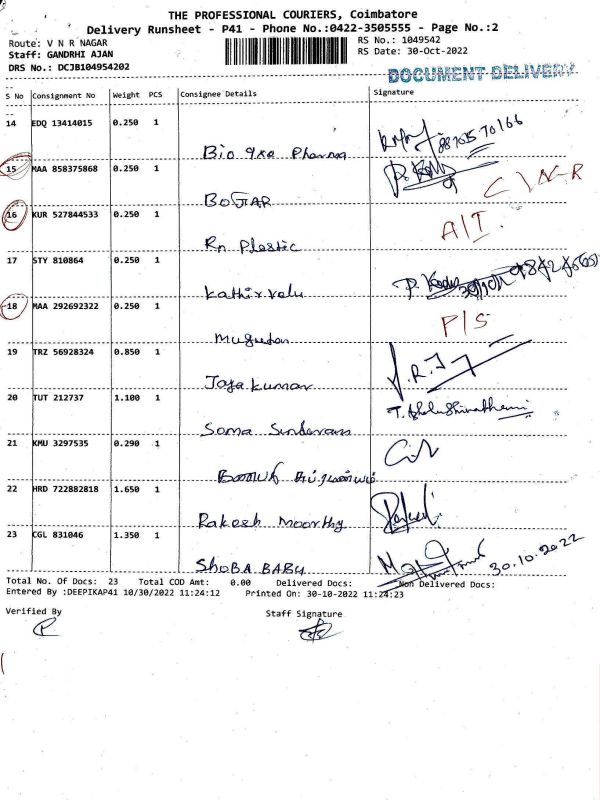 THE PROFESSIONAL COURIERS, Coimbatore
Delivery Runsheet - P41 - Phone No.:0422-3505555 - Page No.:2
Route: V N R NAGAR
RS No.: 1049542
Staff: GANDRHI AJAN
RS Date: 30-Oct-2022
DRS No.: DCJB104954202
DOCUMENT DELIVERY
S No Consignment No Weight PCS Consignee Details Signature
14 EDQ 13414015 0.250 1
Pharma
15 MAA 858375868 0.250 1
C/N-R
16 KUR 527844533 0.250 1
A/I.
Rn Plastic
17 STY 810864 0.250 1
Kathirvelu
18 MAA 292692322 0.250 1
P/S
Mugudan
19 TRZ 56928324 0.850 1
Jayakumar
20 TUT 212737 1.100 1
Soma Sundaram
21 KMU 3297535 0.290 1
22 HRD 722882818 1.650 1
Rakesh Moorthy
23 CGL 831046 1.350 1
30.10.2022
SHOBA BABU
Total No. Of Docs: 23 Total COD Amt: 0.00 Delivered Docs: Non Delivered Docs:
Entered By :DEEPIKAP41 10/30/2022 11:24:12 Printed On: 30-10-2022 11:24:23
Verified By Staff Signature